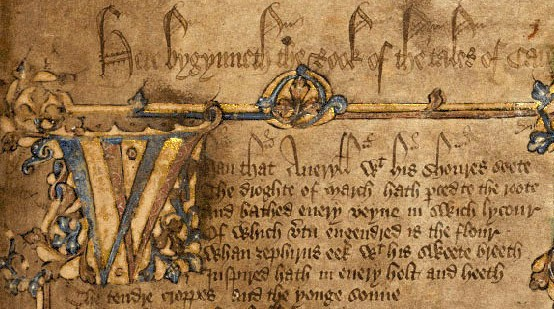 Here bygynneth the Book of the tales of Cau
Whan that Aueryłł wt his shoures soote
The droghte of march hath pced to the roote
And bathed euery veyne in swich lycour
Of which vtu engendred is the flour
Whan zephirus eek wt his sweete breeth
Inspired hath in euery holt and heeth
The tendre croppes and the yonge sonne